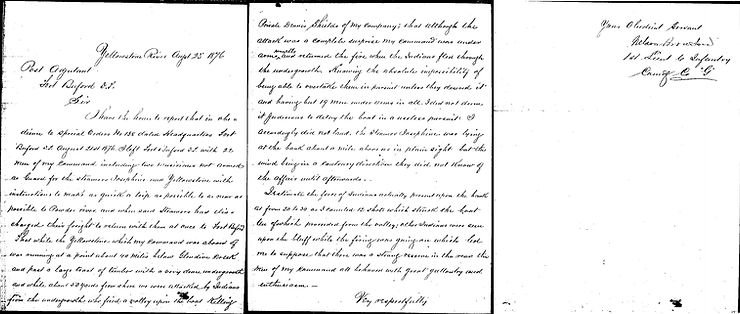 Yellowstone River Augt 25 1876
Post Adjutant
Fort Buford D.T.
Sir
I have the honor to report that in obe
dience to Special Orders No 138 dated Headquarters Fort
Buford D.T. August 21st 1876. I left Fort Buford D.T. with 22
Men of my Command including two musicians not armed
as Guard for the Steamers Josephine and Yellowstone with
instructions to make as quick a trip as possible to as near as
possible to Powder river and when said Steamers had dis
charged their freight to return with them at once to Fort Buford
That while the Yellowstone which my Command was aboard of
was running at a point about 40 Miles below Glendive Creek
and past a large tract of timber with a very dense undergrowth
and while about yards from shore we were attacked by Indians
from the undergrowth who fired a volley upon the boat Killing
Private Dennis Shields of my Company; that although the
attack was a complete surprise my Command was under
arms and returned the fire when the Indians fled through
the undergrowth. Knowing the absolute impossibility of
being able to overtake them in pursuit unless they desired it
and having but 19 men under arms in all I did not deem
it prudent to delay the boat in a useless pursuit. I
accordingly did not land. The Steamer Josephine was lying
at the bank about a mile above us in plain sight but the
wind being in a contrary direction they did not know of
the affair until afterwards.
I estimate the force of Indians actually present upon the bank
at from 20 to 30 as I counted 12 shots which struck the boat
ten of which proceeded from the valley; other Indians were seen
upon the bluff while the firing was going on which led
me to suppose that there was a strong reserve in the rear the
Men of my Command all behaved with great gallantry and
enthusiasm.
Very respectfully
Your Obedient Servant
Nelson Bronson
1st Lieut 6 Infantry
Comdg Co "G"